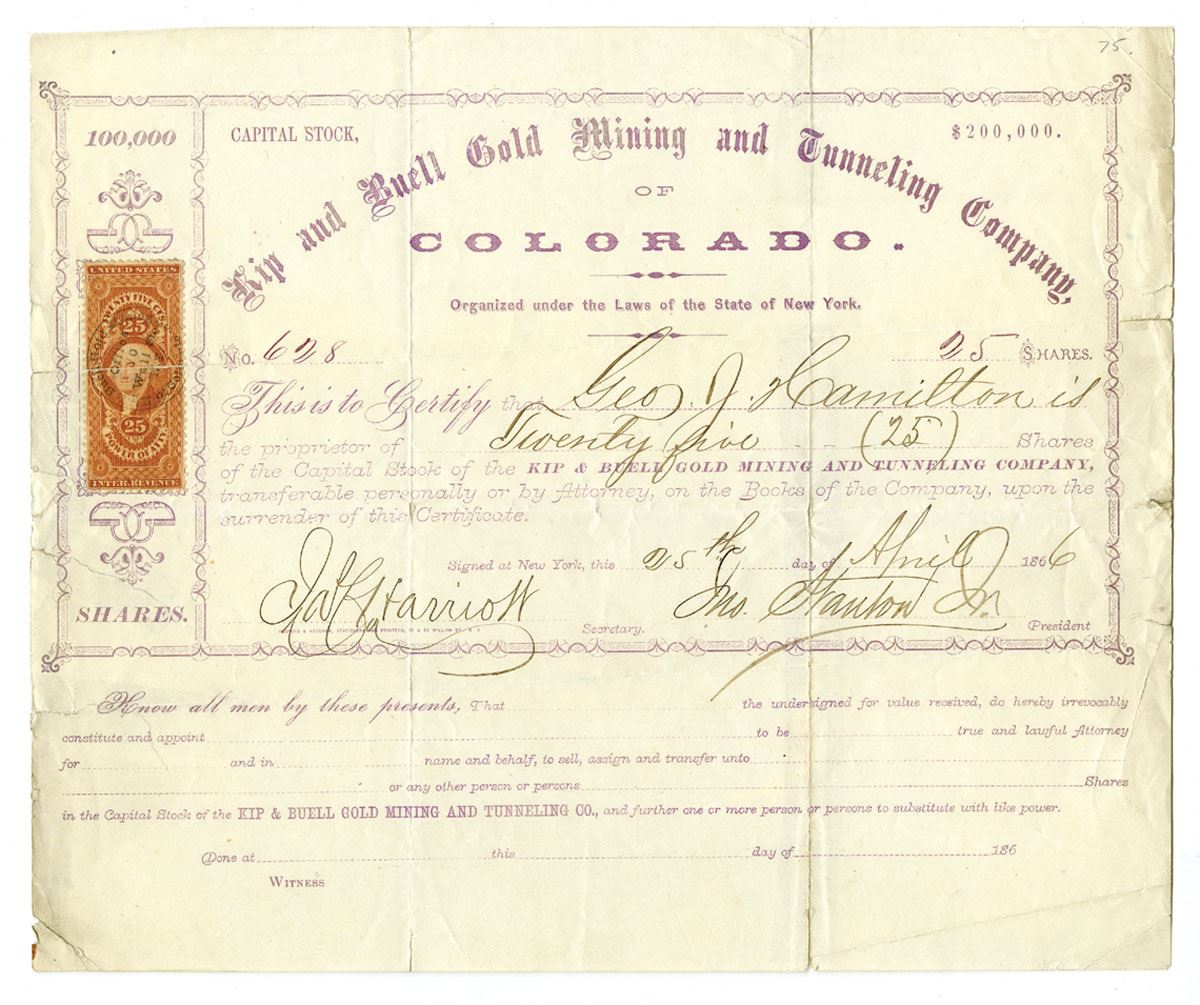 75.
100,000
CAPITAL STOCK,
$200,000.
Kip and Buell Gold Mining and Tunneling Company,
OF
COLORADO.
Organized under the Laws of the State of New York.
UNITED STATES
TWENTY FIVE
25
25
POWER OF ATT'Y
INTER. REVENUE
No. 628
25 SHARES.
This is to Certify that Geo. J. Hamilton is
the proprietor of Twenty five (25) Shares
of the Capital Stock of the KIP & BUELL GOLD MINING AND TUNNELING COMPANY,
transferable personally or by Attorney, on the Books of the Company, upon the
surrender of this Certificate.
Signed at New York, this 25th day of April 1866
SHARES.
Harriott
Secretary.
Jno. Stanton Jr.
President
Know all men by these presents, That the undersigned for value received, do hereby irrevocably
constitute and appoint to be true and lawful Attorney
for and in name and behalf, to sell, assign and transfer unto
or any other person or persons Shares
in the Capital Stock of the KIP & BUELL GOLD MINING AND TUNNELING CO., and further one or more person or persons to substitute with like power.
Done at this day of 186
WITNESS